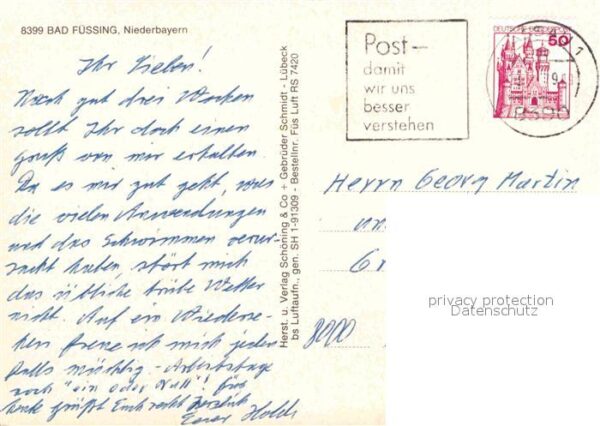 8399 BAD FÜSSING, Niederbayern
Ihr Lieben!
Nach gut drei Wochen
sollt Ihr doch einen
Gruß von mir erhalten.
Da es mir gut geht, was
die vielen Anwendungen
und das Schwimmen verur-
sacht haben, stört mich
das übliche trübe Wetter
nicht. Auf ein Wiederse-
hen freue ich mich jeden-
falls mächtig - Arbeitstage
noch "ein oder Null"! Für
heute grüßt Euch recht herzlich
Euer
Herst. u. Verlag Schöning & Co + Gebrüder Schmidt - Lübeck
bs Luftaufn., gen. SH 1-91309 - Bestellnr. Füs Luft RS 7420
Post-
damit
wir uns
besser
verstehen
DEUTSCHE BUNDESPOST
50
Herrn Georg Martin
8000
privacy protection
Datenschutz